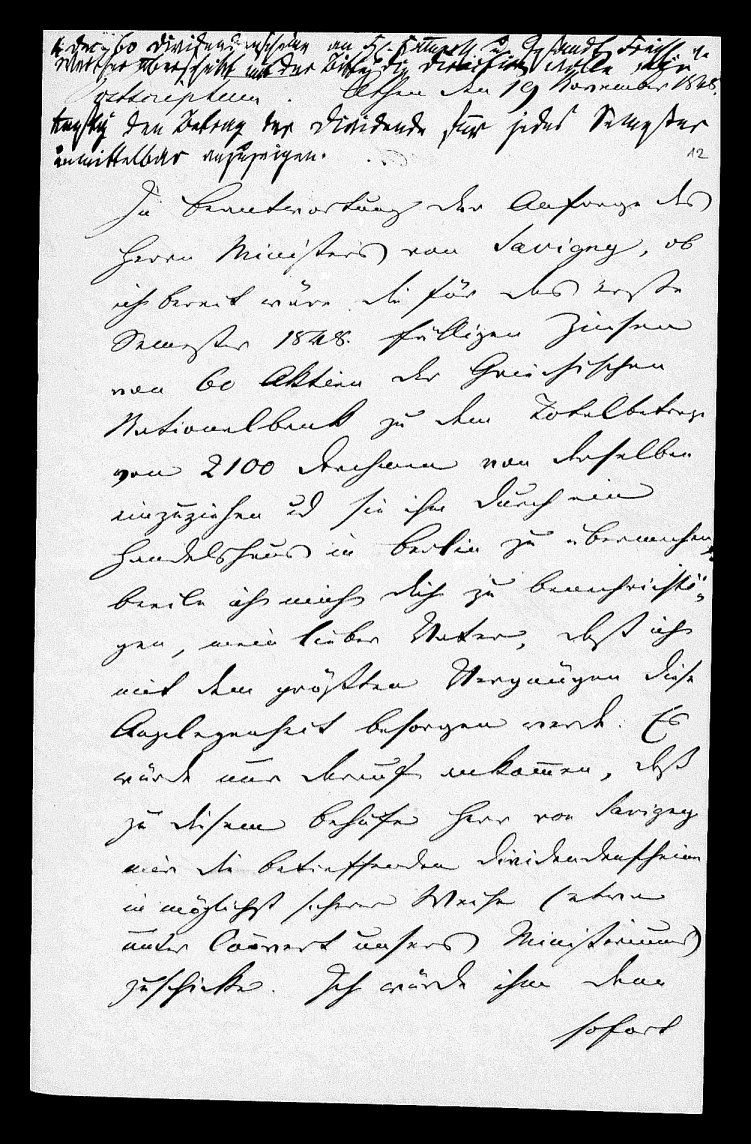 4 Dec. 60 Dividendenscheine an H. Kammerh. u. Gesandt. Freih. v.
Werther überschickt mit der Bitte, die Direction wolle mir
Postscriptum. Athen den 19 November 1848.
künftig den Betrag der Dividende für jedes Semester
unmittelbar anzuzeigen.
12
In Beantwortung der Anfrage des
Herrn Ministers von Savigny, ob
ich bereit wäre die für das erste
Semester 1848. fälligen Zinsen
von 60 Aktien der Griechischen
Nationalbank zu dem Totalbetrage
von 2100 Drachmen von derselben
einzuziehen ud sie ihm durch ein
Handelshaus in Berlin zu übermachen,
beeile ich mich Dich zu benachrichti-
gen, mein lieber Vater, daß ich
mit dem größten Vergnügen diese
Angelegenheit besorgen werde. Es
würde nur darauf ankom̄en, daß
zu diesem Behufe Herr von Savigny
mir die betreffenden Dividendenscheine
in möglichst sicherer Weise (etwa
unter Couvert unsers Ministeriums)
zuschicke. Ich würde ihm dann
sofort